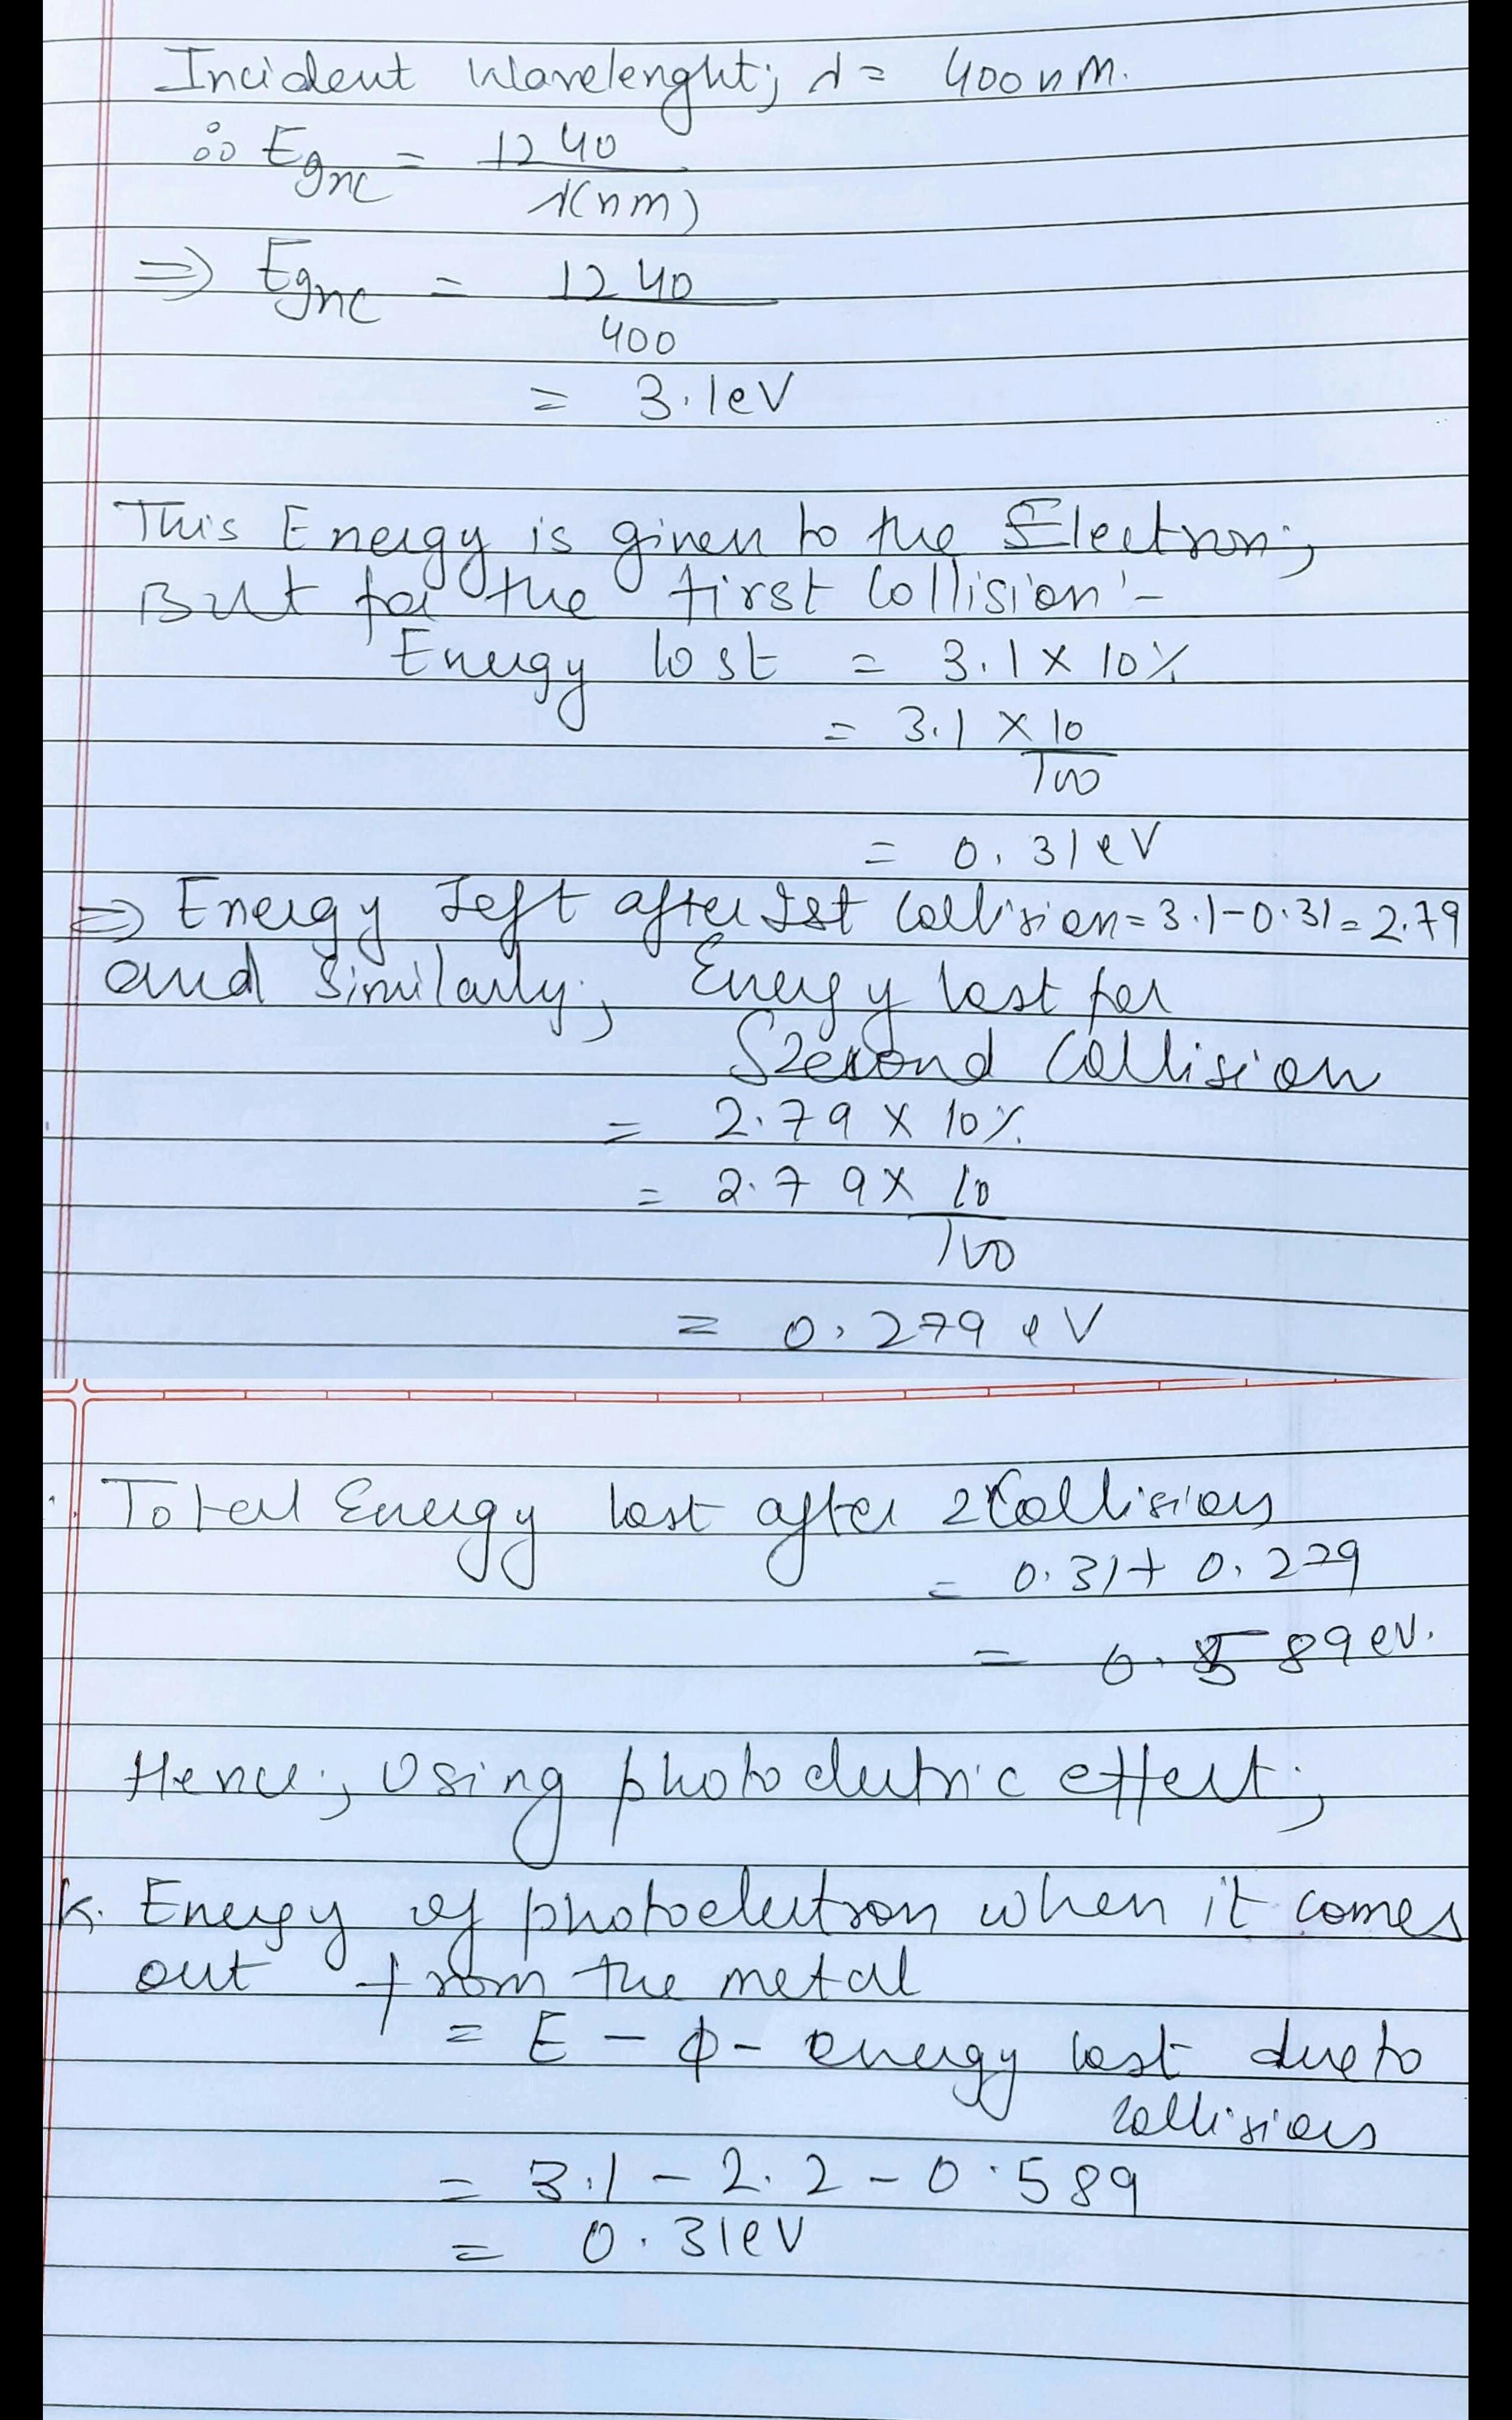 Incident Wavelenght; λ = 400nm.
∴ Einc = 1240
λ(nm)
⇒ Einc = 1240
400
= 3.1eV
This Energy is given to the Electron;
But for the first Collision:-
Energy lost = 3.1 × 10%
= 3.1 × 10
100
= 0.31eV
⇒ Energy Left after Ist Collision = 3.1-0.31=2.79
and Similarly; Energy lost for
Second Collision
= 2.79 × 10%
= 2.79 × 10
100
= 0.279 eV
Total Energy lost after 2 Collisions
= 0.31+ 0.279
= 0.589 eV.
Hence; Using photoelectric effect;
K. Energy of photoelectron when it comes
out from the metal
= E - Φ - energy lost due to
collisions
= 3.1 - 2.2 - 0.589
= 0.31eV